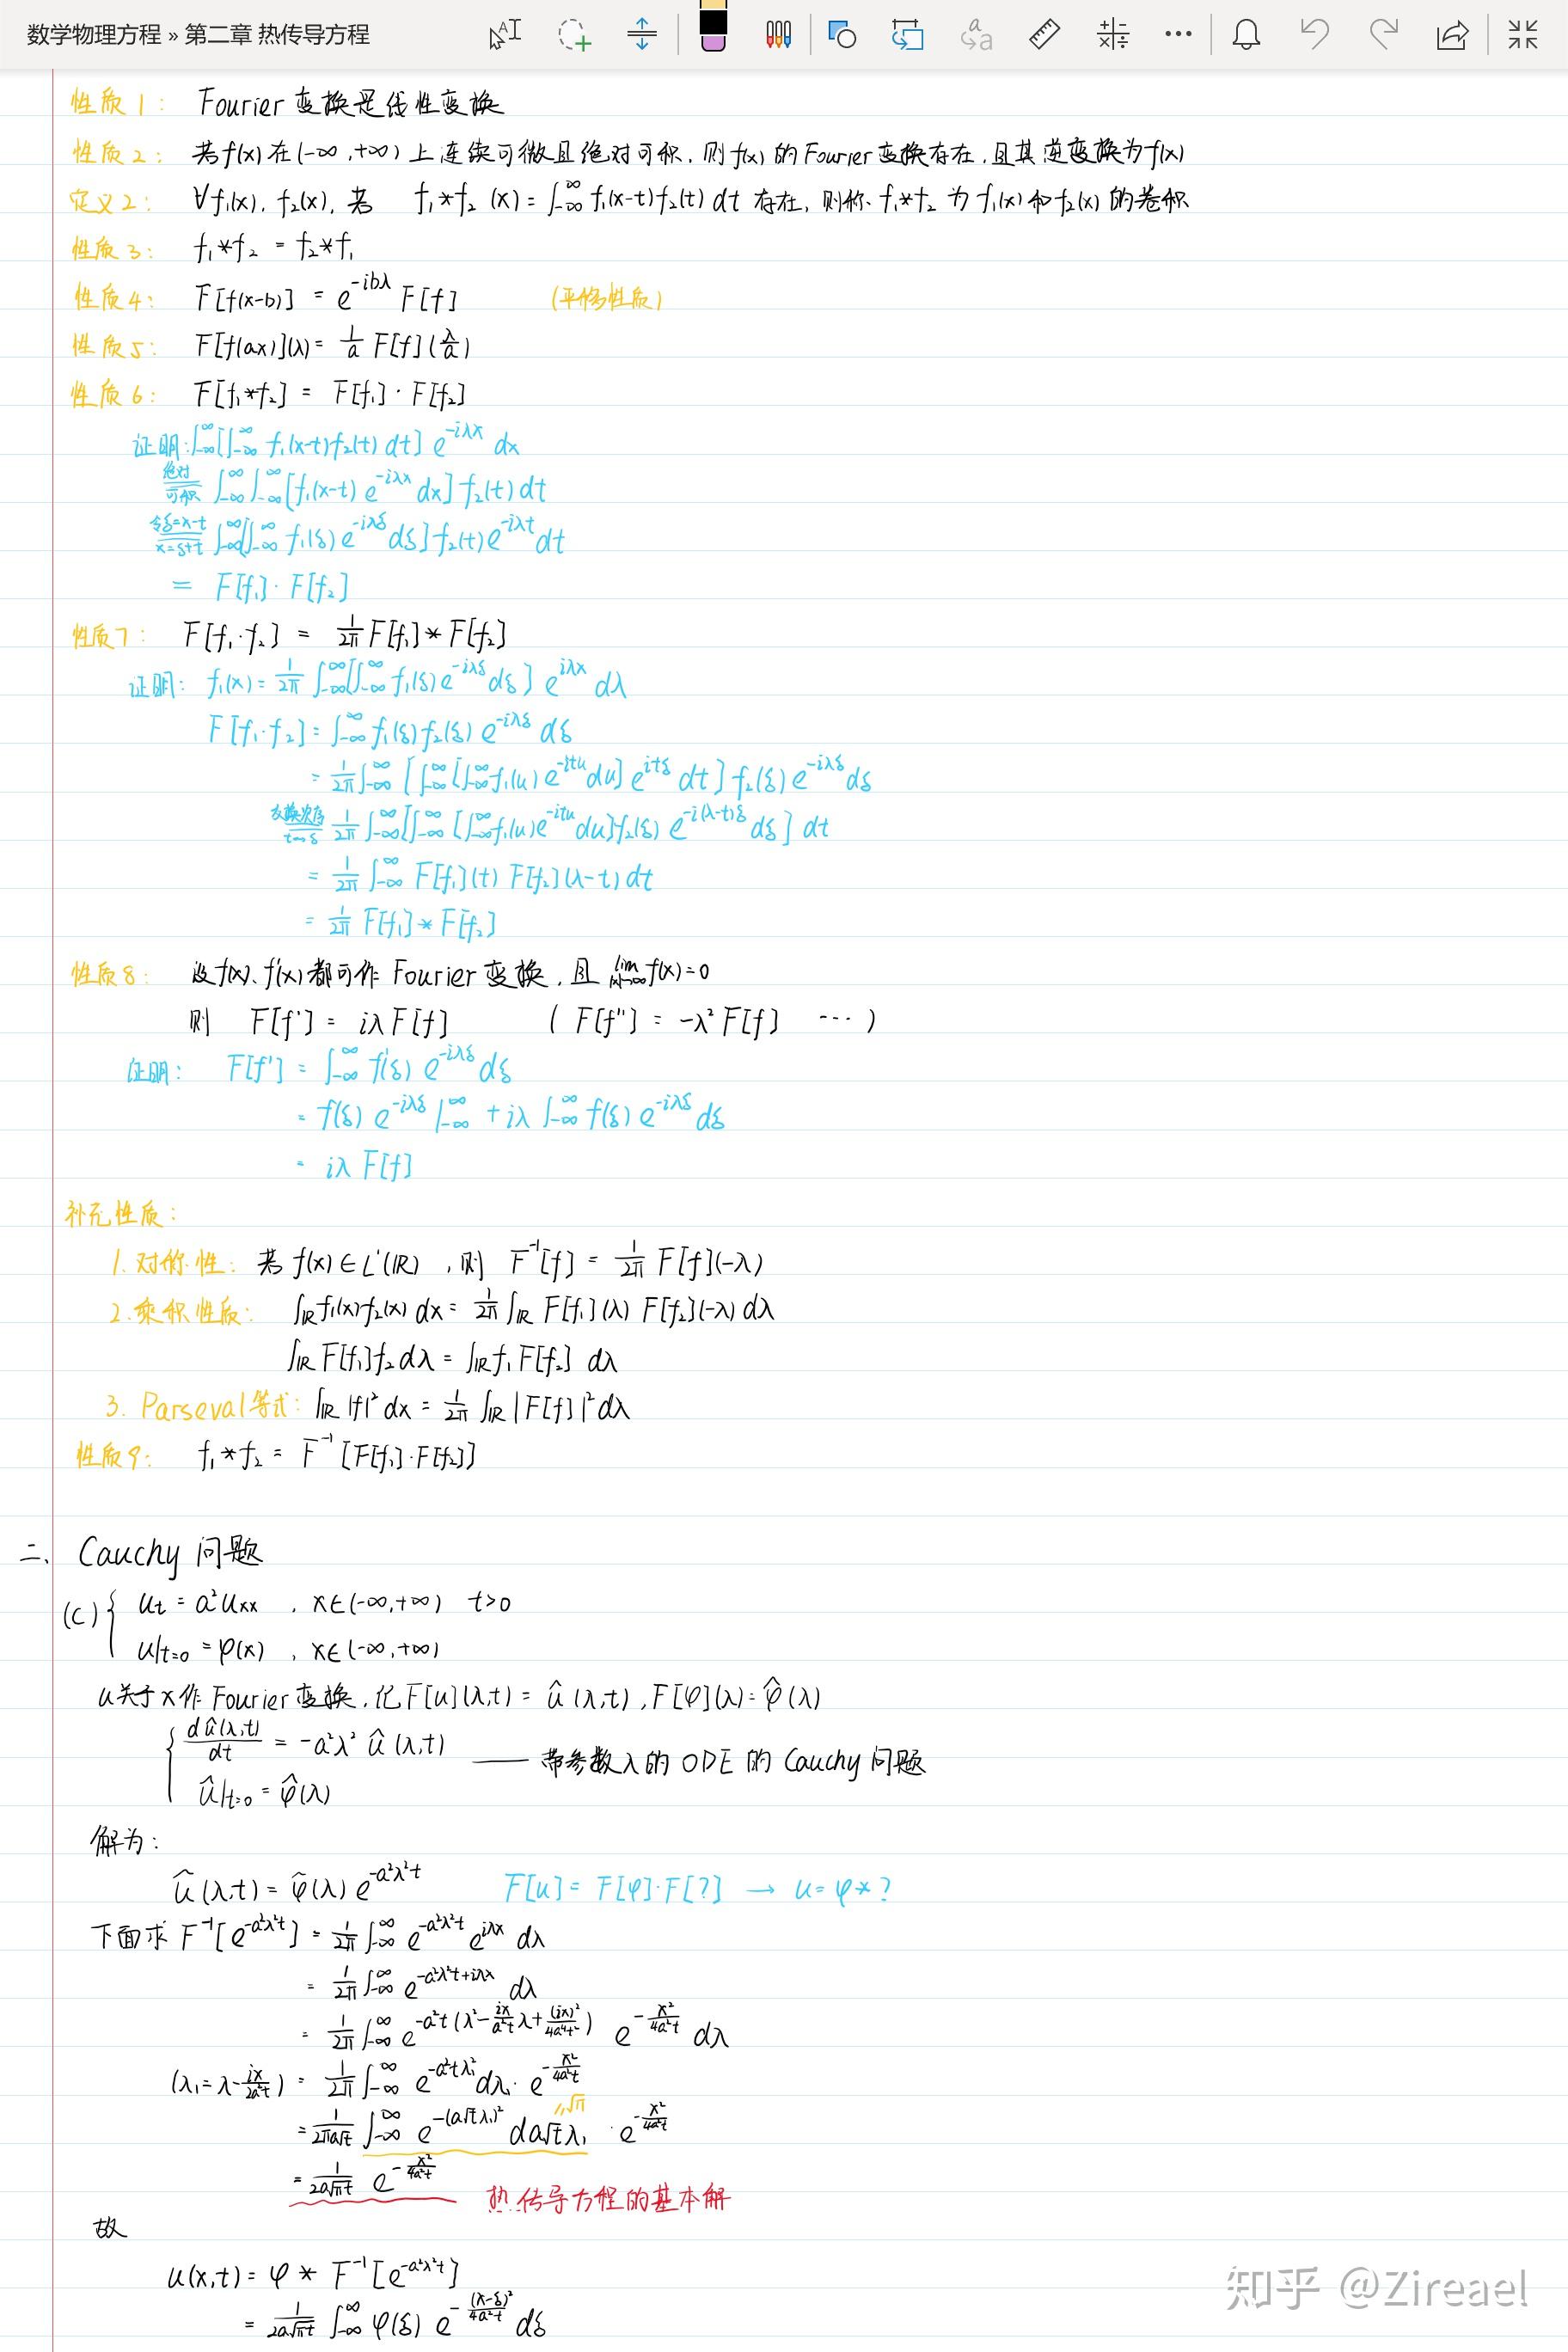 数学物理方程 » 第二章 热传导方程
性质1: Fourier 变换是线性变换
性质2: 若f(x)在(-∞,+∞)上连续可微且绝对可积,则f(x)的Fourier变换存在,且其逆变换为f(x)
定义2: ∀f₁(x), f₂(x), 若 f₁*f₂ (x) = ∫_{-∞}^{∞} f₁(x-t)f₂(t) dt 存在, 则称 f₁*f₂ 为 f₁(x)和f₂(x)的卷积
性质3: f₁*f₂ = f₂*f₁
性质4: F[f(x-b)] = e^{-ibλ} F[f] (平移性质)
性质5: F[f(ax)](λ) = 1/a F[f](λ/a)
性质6: F[f₁*f₂] = F[f₁]·F[f₂]
证明: ∫_{-∞}^{∞}[∫_{-∞}^{∞} f₁(x-t)f₂(t) dt] e^{-iλx} dx
绝对可积 ∫_{-∞}^{∞}∫_{-∞}^{∞}[f₁(x-t) e^{-iλx} dx] f₂(t) dt
令ξ=x-t x=ξ+t ∫_{-∞}^{∞}[∫_{-∞}^{∞} f₁(ξ) e^{-iλξ} dξ] f₂(t) e^{-iλt} dt
= F[f₁]·F[f₂]
性质7: F[f₁·f₂] = 1/2π F[f₁]*F[f₂]
证明: f₁(x) = 1/2π ∫_{-∞}^{∞}[∫_{-∞}^{∞} f₁(ξ) e^{-iλξ} dξ] e^{iλx} dλ
F[f₁·f₂] = ∫_{-∞}^{∞} f₁(ξ)f₂(ξ) e^{-iλξ} dξ
= 1/2π ∫_{-∞}^{∞} [∫_{-∞}^{∞}[∫_{-∞}^{∞} f₁(u) e^{-itu} du] e^{itξ} dt] f₂(ξ) e^{-iλξ} dξ
交换次序 t↔ξ 1/2π ∫_{-∞}^{∞}[∫_{-∞}^{∞} [∫_{-∞}^{∞} f₁(u) e^{-itu} du] f₂(ξ) e^{-i(λ-t)ξ} dξ] dt
= 1/2π ∫_{-∞}^{∞} F[f₁](t) F[f₂](λ-t) dt
= 1/2π F[f₁]*F[f₂]
性质8: 设f(x)、f'(x)都可作 Fourier 变换, 且 lim_{|x|→∞} f(x)=0
则 F[f'] = iλF[f] ( F[f''] = -λ²F[f] ··· )
证明: F[f'] = ∫_{-∞}^{∞} f'(ξ) e^{-iλξ} dξ
= f(ξ) e^{-iλξ} |_{-∞}^{∞} + iλ ∫_{-∞}^{∞} f(ξ) e^{-iλξ} dξ
= iλ F[f]
补充性质:
1. 对称性: 若 f(x)∈L¹(ℝ), 则 F⁻¹[f] = 1/2π F[f](-λ)
2. 乘积性质: ∫_ℝ f₁(x)f₂(x) dx = 1/2π ∫_ℝ F[f₁](λ) F[f₂](-λ) dλ
∫_ℝ F[f₁]f₂ dλ = ∫_ℝ f₁F[f₂] dλ
3. Parseval等式: ∫_ℝ |f|² dx = 1/2π ∫_ℝ |F[f]|² dλ
性质9: f₁*f₂ = F⁻¹[F[f₁]·F[f₂]]
二、Cauchy 问题
(C) { u_t = a²u_xx , x∈(-∞,+∞) t>0
u|_{t=0} = φ(x) , x∈(-∞,+∞)
u关于x作Fourier变换, 记F[u](λ,t) = û(λ,t), F[φ](λ) = φ̂(λ)
{ dû(λ,t)/dt = -a²λ² û(λ,t) —— 带参数λ的ODE的Cauchy问题
û|_{t=0} = φ̂(λ)
解为:
û(λ,t) = φ̂(λ) e^{-a²λ²t} F[u] = F[φ]·F[?] → u = φ*?
下面求 F⁻¹[e^{-a²λ²t}] = 1/2π ∫_{-∞}^{∞} e^{-a²λ²t} e^{iλx} dλ
= 1/2π ∫_{-∞}^{∞} e^{-a²λ²t+iλx} dλ
= 1/2π ∫_{-∞}^{∞} e^{-a²t(λ²-\frac{ix}{a²t}λ+\frac{(ix)²}{4a⁴t²})} e^{-\frac{x²}{4a²t}} dλ
(λ₁=λ-\frac{ix}{2a²t}) = 1/2π ∫_{-∞}^{∞} e^{-a²tλ₁²} dλ₁ · e^{-\frac{x²}{4a²t}}
= \frac{1}{2πa√t} ∫_{-∞}^{∞} e^{-(a√tλ₁)²} da√tλ₁ · e^{-\frac{x²}{4a²t}} "√π
= \frac{1}{2a√πt} e^{-\frac{x²}{4a²t}} 热传导方程的基本解
故
u(x,t) = φ * F⁻¹[e^{-a²λ²t}]
= \frac{1}{2a√πt} ∫_{-∞}^{∞} φ(ξ) e^{-\frac{(x-ξ)²}{4a²t}} dξ
知乎 @Zireael